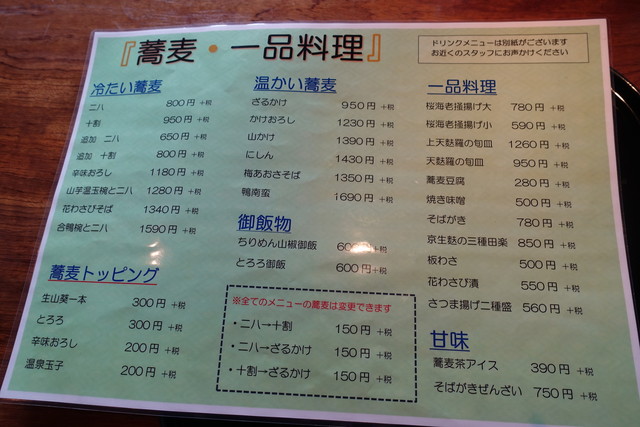 『蕎麦・一品料理』
ドリンクメニューは別紙がございます
お近くのスタッフにお声かけください
冷たい蕎麦
二八 800円 +税
十割 950円 +税
追加 二八 650円 +税
追加 十割 800円 +税
辛味おろし 1180円 +税
山芋温玉椀と二八 1280円 +税
花わさびそば 1340円 +税
合鴨椀と二八 1590円 +税
蕎麦トッピング
生山葵一本 300円 +税
とろろ 300円 +税
辛味おろし 200円 +税
温泉玉子 200円 +税
温かい蕎麦
ざるかけ 950円 +税
かけおろし 1230円 +税
山かけ 1390円 +税
にしん 1430円 +税
梅あおさそば 1350円 +税
鴨南蛮 1690円 +税
御飯物
ちりめん山椒御飯 600円 +税
とろろ御飯 600円 +税
※全てのメニューの蕎麦は変更できます
・二八→十割 150円 +税
・二八→ざるかけ 150円 +税
・十割→ざるかけ 150円 +税
一品料理
桜海老掻揚げ大 780円 +税
桜海老掻揚げ小 590円 +税
上天麩羅の旬皿 1260円 +税
天麩羅の旬皿 950円 +税
蕎麦豆腐 280円 +税
焼き味噌 500円 +税
そばがき 780円 +税
京生麩の三種田楽 850円 +税
板わさ 500円 +税
花わさび漬 550円 +税
さつま揚げ二種盛 560円 +税
甘味
蕎麦茶アイス 390円 +税
そばがきぜんざい 750円 +税